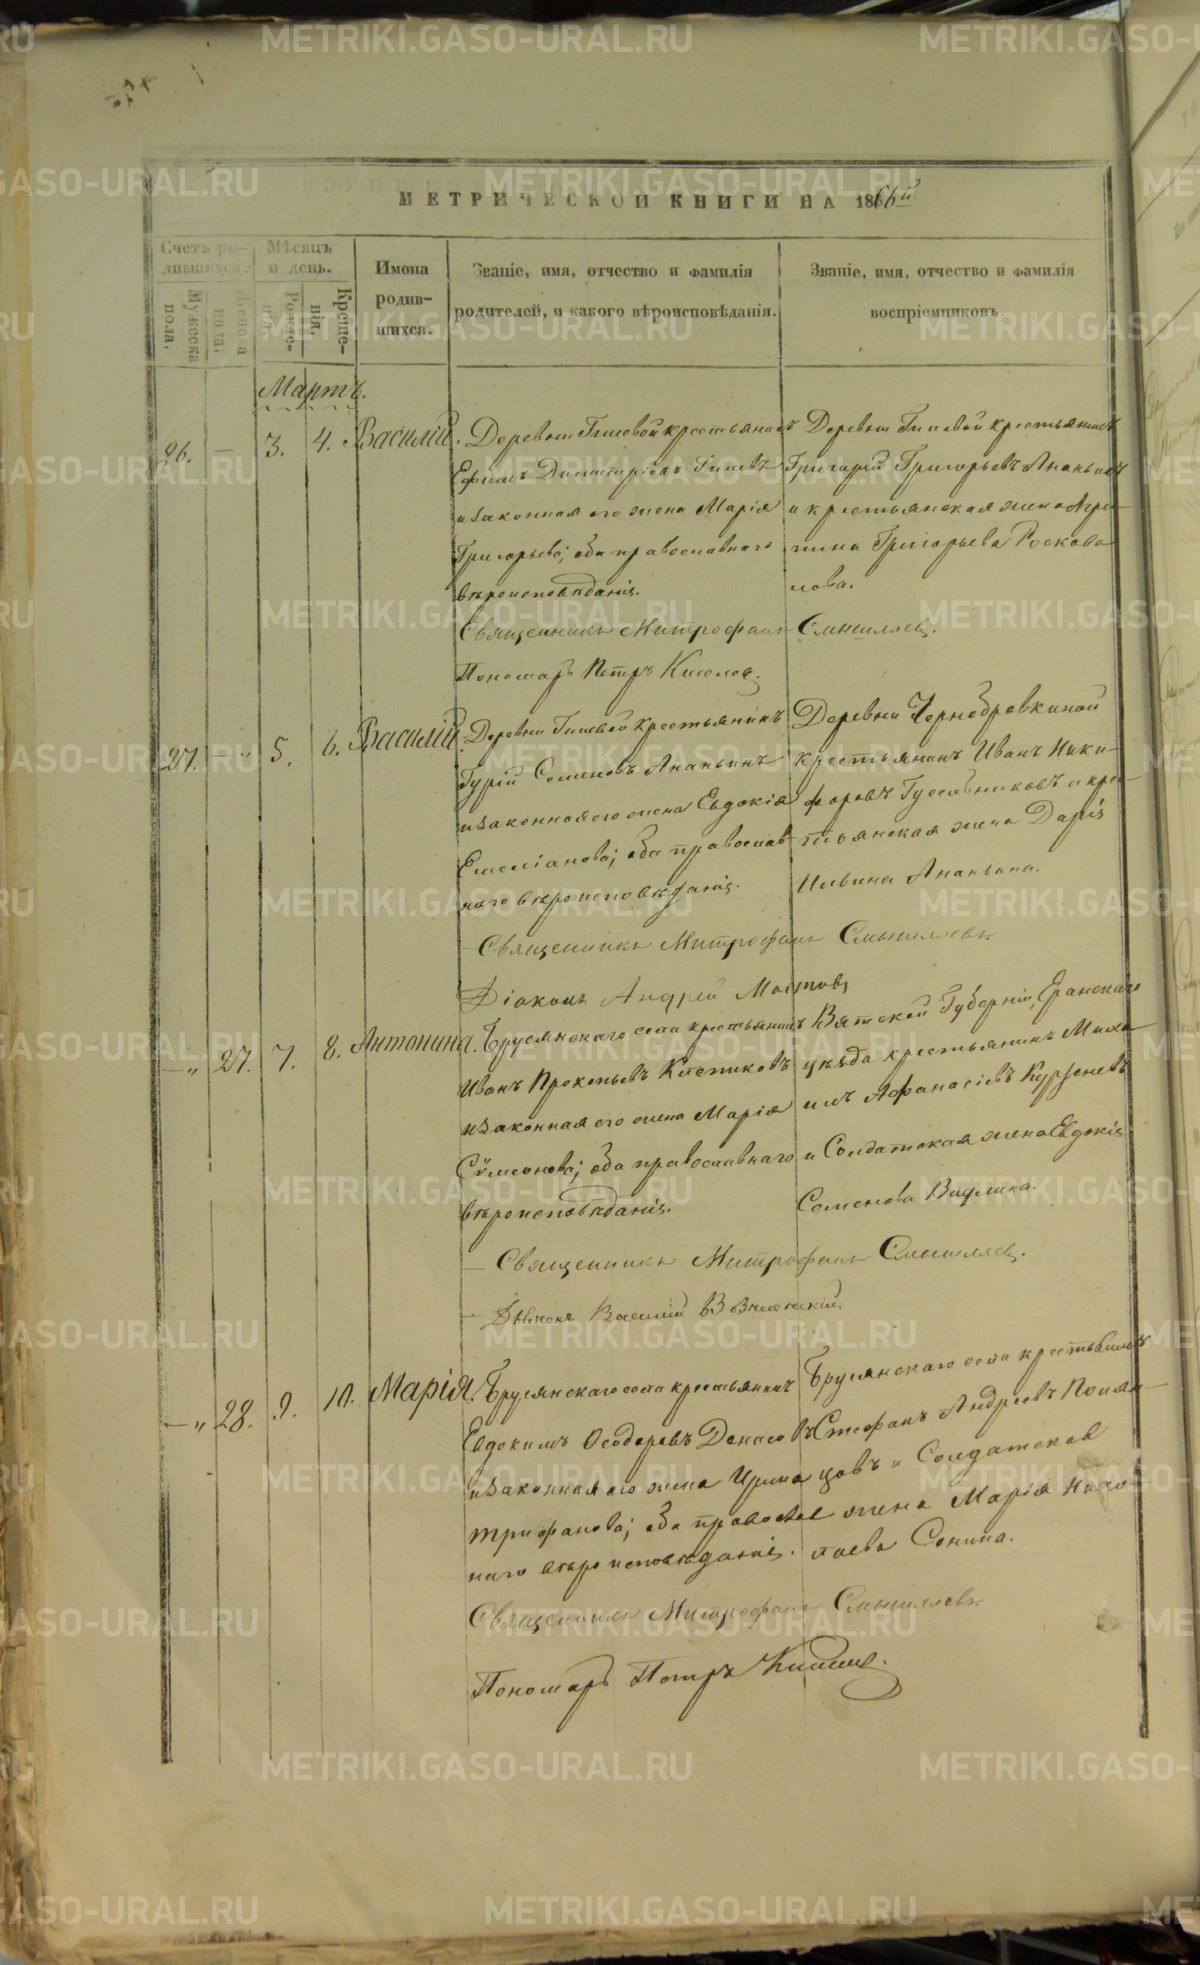 МЕТРИЧЕСКОЙ КНИГИ НА 1866й
Счетъ ро-
дившихся.
Мѣсяцъ
и день.
Мужеска
пола.
Женска
пола.
Рожде-
нія.
Креще-
нія.
Имена
родив-
шихся.
Званіе, имя, отчество и фамилія
родителей, и какого вѣроисповѣданія.
Званіе, имя, отчество и фамилія
воспріемниковъ
Мартъ.
26. — 3. 4. Василій.
Деревни Гилевой крестьянинъ
Ефимъ Димитріевъ Гилевъ
и законная его жена Марія
Григорьева; оба православнаго
вѣроисповѣданія.
Деревни Гилевой крестьянинъ
Григорій Григорьевъ Ананьинъ
и крестьянская жена Агри-
пина Григорьева
лова.
Священникъ Митрофанъ Смышляевъ.
Пономарь Петръ Киселевъ.
27. " 5. 6. Василій.
Деревни Гилевой крестьянинъ
Гурій Семеновъ Ананьинъ
и законная его жена Евдокія
Емеліанова; оба православ-
наго вѣроисповѣданія.
Деревни Чернобровкиной
крестьянинъ Иванъ Ники-
форовъ Гусельниковъ и крес-
тьянская жена Дарія
Ильина Ананьина.
Священникъ Митрофанъ Смышляевъ
Діаконъ Андрей
—" 27. 7. 8. Антонина.
Брусянскаго села крестьянинъ
Иванъ Прокопьевъ
и законная его жена Марія
Сѵмеонова; оба православнаго
вѣроисповѣданія.
Вятской Губерніи, Еранскаго
уѣзда крестьянинъ Миха-
илъ Афанасіевъ
и Солдатская жена Евдокія
Семенова
Священникъ Митрофанъ Смышляевъ.
Дьячекъ Василій
—" 28. 9. 10. Марія.
Брусянскаго села крестьянинъ
Евдокимъ Ѳеодоровъ
и законная его жена Ирина
Трифанова; оба православ
наго вѣроисповѣданія.
Брусянскаго села крестьянинъ
Стефанъ Андреевъ
цовъ и Солдатская
жена Марія Нико-
лаева Сонина.
Священникъ Митрофанъ Смышляевъ
Пономарь Петръ Киселевъ.
METRIKI.GASO-URAL.RU